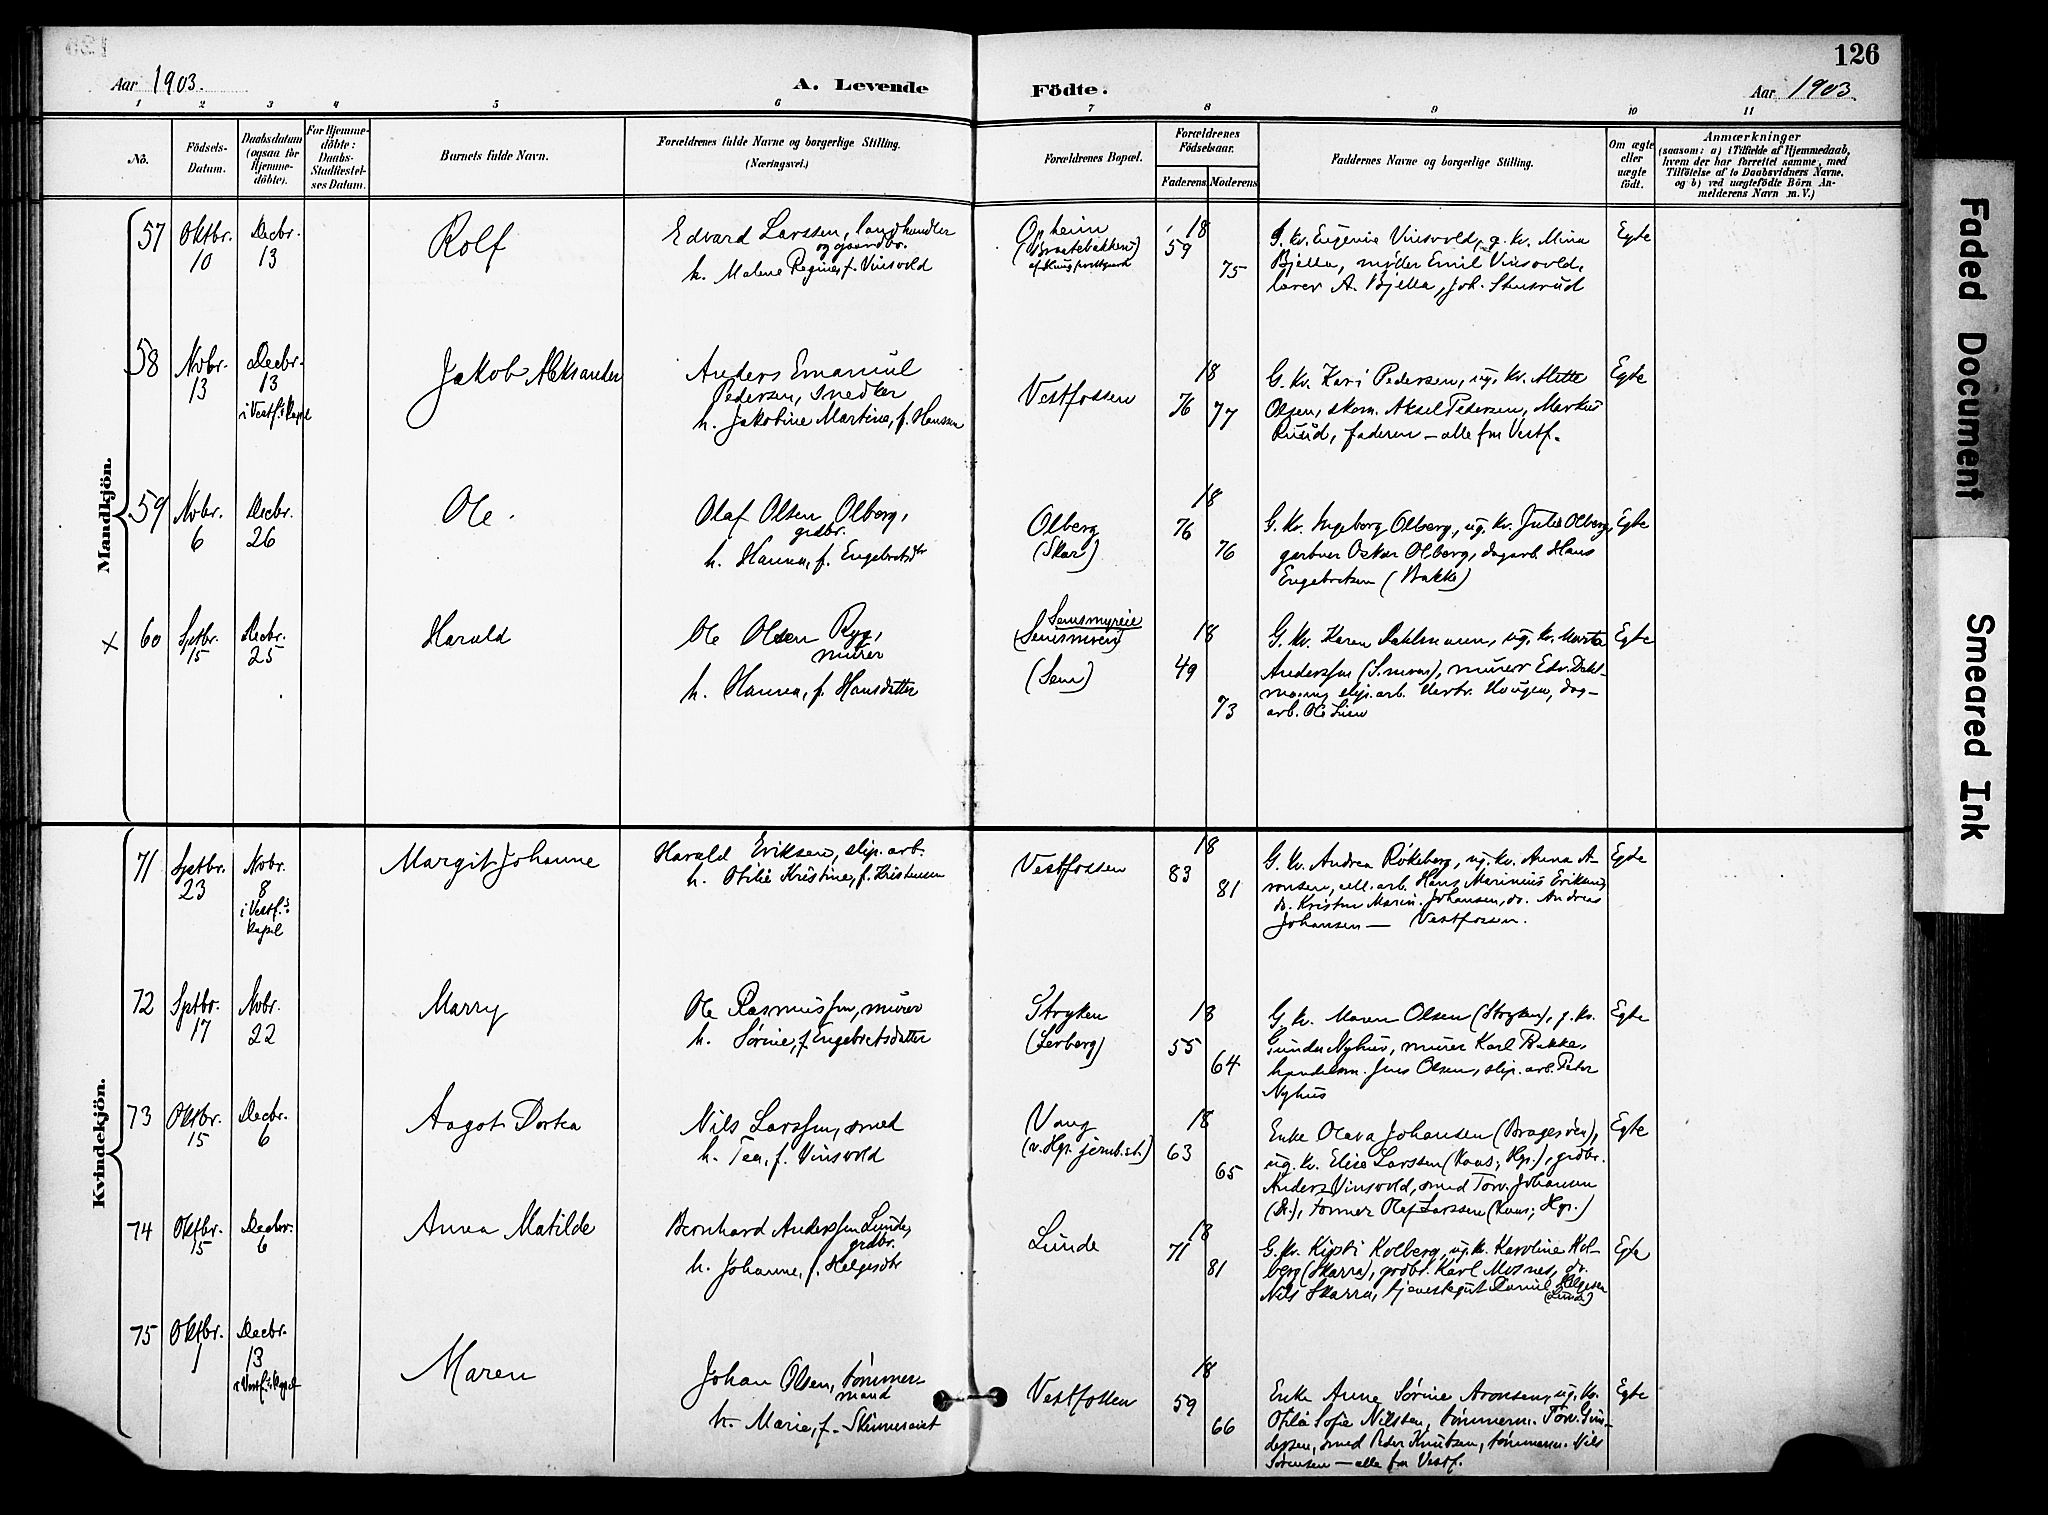 126
Aar 1903.
A. Levende Födte.
Aar 1903.
1 2 3 4 5 6 7 8 9 10 11
No.
Födsels-
Datum.
Daabsdatum
(ogsaa for
Hjemme-
döbte).
For Hjemme-
döbte:
Daabs-
Stadfæstel-
ses Datum.
Barnets fulde Navn.
Forældrenes fulde Navne og borgerlige Stilling.
(Næringsvei.)
Forældrenes Bopæl.
Forældrenes
Födselsaar.
Faderens. Moderens.
Faddernes Navne og borgerlige Stilling.
Om ægte
eller
uægte
födt.
Anmærkninger
(saasom: a) i Tilfælde af Hjemmedaab,
hvem der har forrettet samme, med
Tilföielse af to Daabsvidners Navne,
og b) ved uægtefödte Börn An-
melderens Navn m. V.)
Mandkjön.
57 Oktbr. 10 Decbr. 13
Rolf
Edvard Larssen, landhandler
og gaardbr.
h. Malene Regine, f. Vinsvold
Opheim
(Braatebakken)
18 59 75
G. kv. Eugenie Vinsvold, g. kv. Mina
Bjella, møller Emil Vinsvold,
lærer A. Bjella, Joh.
Egte
58 Novbr. 13 Decbr. 13
i Vestf.s kapel
Jakob Aleksander
Anders Emanuel
Pedersen, snedker
h. Jakobine Martine, f. Hanssen
Vestfossen
18 76 77
G. kv. Kari Pedersen, ug. kv. Alette
Olsen, skom. Aksel Pedersen, Markus
Ruud, faderen — alle fra Vestf.
Egte
59 Novbr. 6 Decbr. 26
Ole.
Olaf Olsen Olberg,
grdbr.
h. Hanna, f. Engebretsdtr
Olberg
(Skar)
18 76 76
G. kv. Ingeborg Olberg, ug. kv. Julie Olberg,
gartner Oskar Olberg, dagarb. Hans
Engebretsen (Bakke)
Egte
x 60 Sptbr. 15 Decbr. 25
Harald
Ole Olsen Ryg,
murer
h. Hanna, f. Hansdatter
Semsmyreie
(Sem)
18 49 73
G. kv. Karen Dahlmann, ug. kv. Marta
Anderssen murer Edv. Dahl-
mann, slip. arb. Herbr. Haugen, dag-
arb. Ole Lien
Egte
Kvindekjön.
71 Sptbr. 23 Novbr. 8
i Vestf.s
kapel
Margit Johanne
Harald Eriksen, slip. arb.
h. Otilie Kristine, f. Kristensen
Vestfossen
18 83 81
G. kv. Andrea Røkeberg, ug. kv. Anna A-
ronsen, cell. arb. Hans Marinius Eriksen,
do. Kristen Marin. Johansen, do. Andreas
Johansen — Vestfossen.
Egte
72 Sptbr. 17 Novbr. 22
Marry
Ole Rasmussen, murer
h. Sørine, f. Engebretsdatter
Stryken
(Lerberg)
18 55 64
G. kv. Maren Olsen (Stryken), g. kv.
Gunda Nyhus, murer Karl Bakke,
handelsm. Jens Olsen, slip. arb. Peter
Nyhus
Egte
73 Oktbr. 15 Decbr. 6
Aagot Dortea
Nils Larssen, smed
h. Tea, f. Vinsvold
Vang
(v. Hgs. jernb. st.)
18 63 65
Enke Olava Johansen (Bragerøen),
ug. kv. Elise Larssen (Kaas, Hgs.), grdbr.
Anders Vinsvold, smed Torv. Johansen
(Dr.), tømmer Olaf Larssen (Kaas, Hgs.)
Egte
74 Oktbr. 15 Decbr. 6
Anna Matilde
Bernhard Anderssen Lunde,
grdbr.
h. Johanne, f. Helgesdtr
Lunde
18 71 81
G. kv. Kirsti Kolberg, ug. kv. Karoline Kol-
berg (Skarra), grdbr. Karl Mosnes, do.
Nils Skarra, tjenestegut Daniel Helgesen
(Lunde)
Egte
75 Oktbr. 1 Decbr. 13
i Vestf.s kapel
Maren
Johan Olsen, tømmer-
mand
h. Marie, f.
Vestfossen
18 59 66
Enke Anne Sørine Aronsen, ug. kv.
Otilie Sofie Nilssen, tømmerm. Torv. Gun-
dersen, smed Peder Knutsen, tømmerm. Nils
Sørensen — alle fra Vestf.
Egte
Faded Document
Smeared Ink